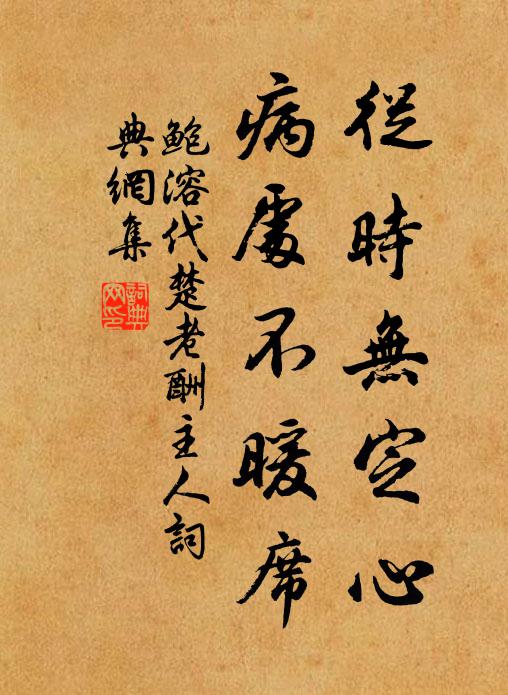 從時無定心
病處不暖席
鮑溶代楚老酬主人詞
典網集
詞典網印